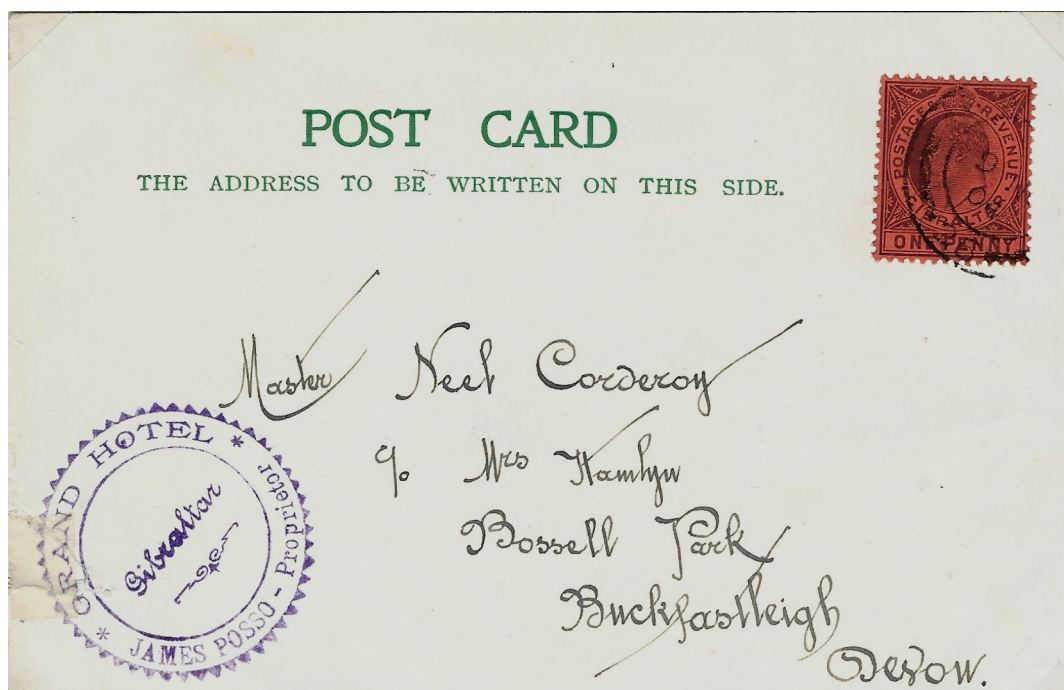 POST CARD
THE ADDRESS TO BE WRITTEN ON THIS SIDE.
POSTAGE & REVENUE
GIBRALTAR
ONE PENNY
Master Neel Corderoy
c/o Mrs Hamlyn
Bossell Park
Buckfastleigh
Devon.
* GRAND HOTEL *
JAMES POSSO - Proprietor
Gibraltar